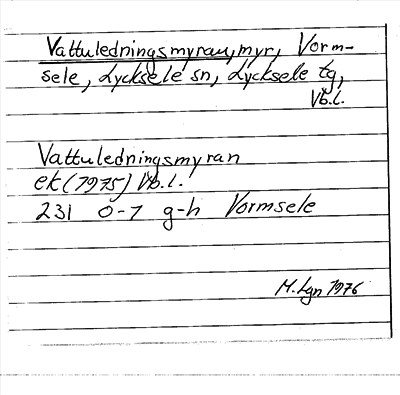 Vattuledningsmyran, myr, Vorm-
sele, Lycksele sn, Lycksele tg,
Vb.l.
Vattuledningsmyran
ek (1975) Vb.l.
231 0-1 g-h Vormsele
M. Lgn 1976